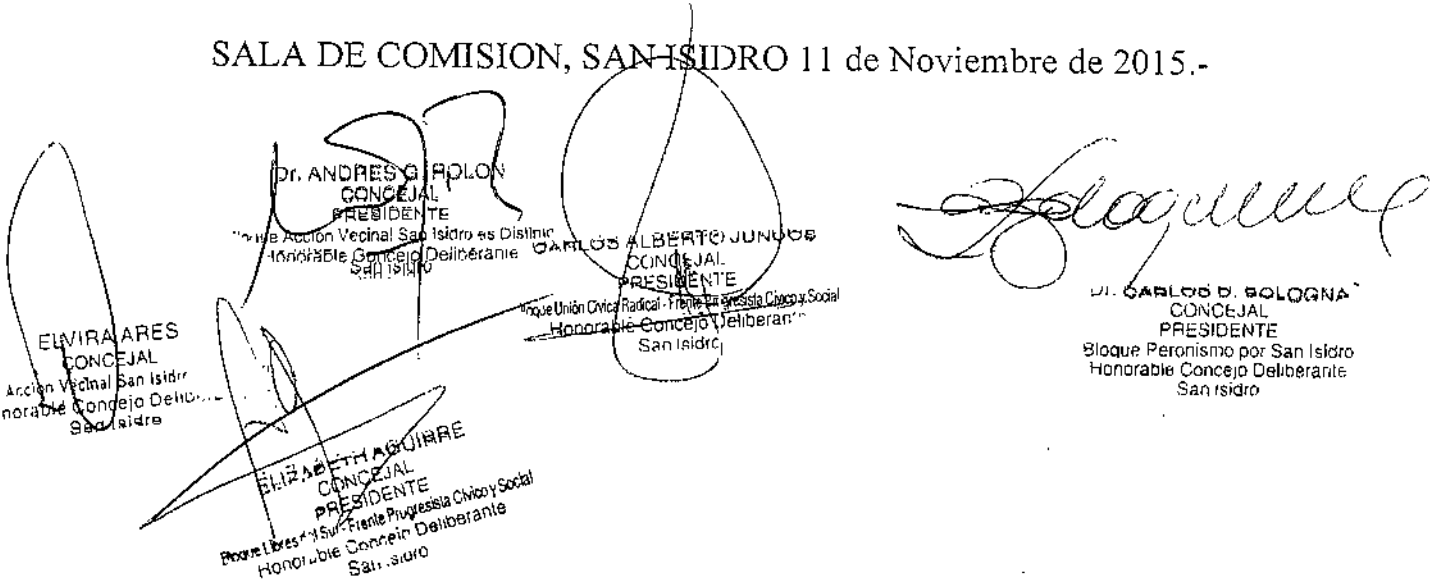 SALA DE COMISION, SAN ISIDRO 11 de Noviembre de 2015.-
Dr. ANDRES G. ROLON
CONCEJAL
PRESIDENTE
Acción Vecinal San Isidro es Distinto
Honorable Concejo Deliberante
San Isidro
CARLOS ALBERTO JUNCOS
CONCEJAL
PRESIDENTE
Unión Cívica Radical - Frente Progresista Cívico y Social
Honorable Concejo Deliberan
San Isidro
Dr. CARLOS D. BOLOGNA
CONCEJAL
PRESIDENTE
Bloque Peronismo por San Isidro
Honorable Concejo Deliberante
San Isidro
ELVIRA ARES
CONCEJAL
Acción Vecinal San Isidro
norable Concejo Delib
San Isidro
ELIZABETH AGUIRRE
CONCEJAL
PRESIDENTE
Bloque Libres del Sur - Frente Progresista Cívico y Social
Honorable Concejo Deliberante
San Isidro